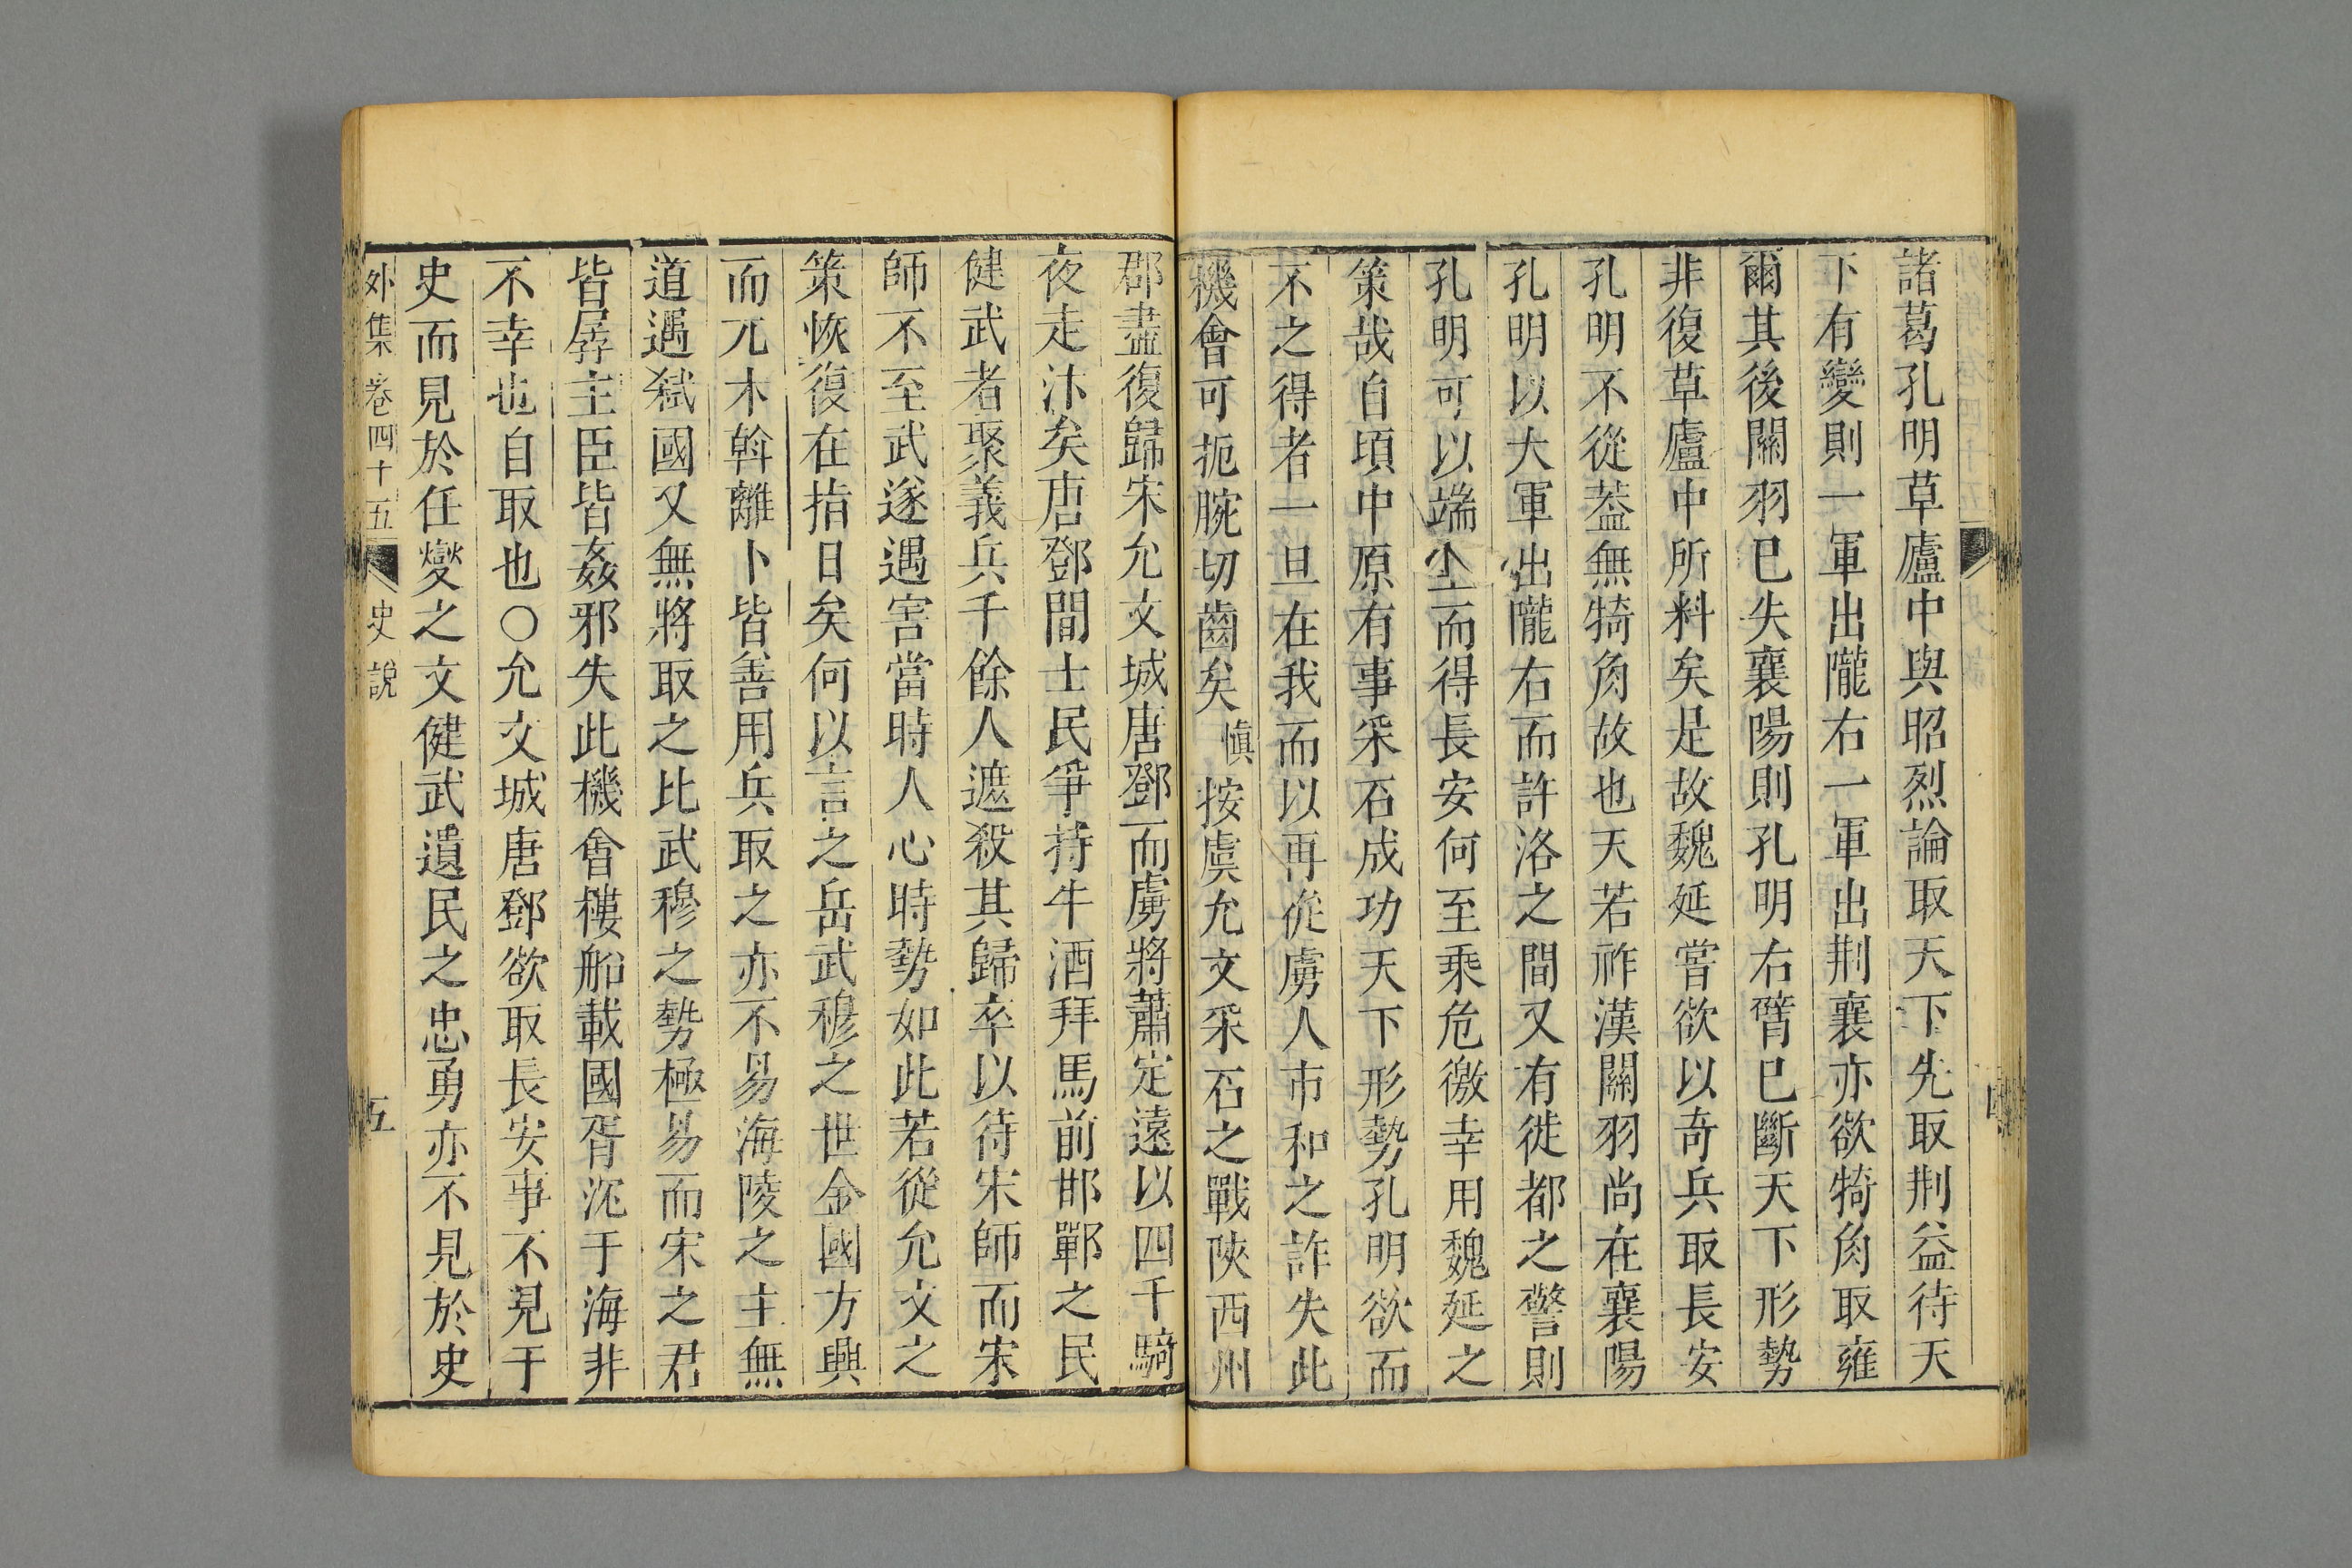 諸葛孔明草廬中與昭烈論取天下先取荆益待天
下有變則一軍出隴右一軍出荆襄亦欲犄角取雍
爾其後關羽已失襄陽則孔明右臂已斷天下形勢
非復草廬中所料矣是故魏延嘗欲以奇兵取長安
孔明不從葢無犄角故也天若祚漢關羽尚在襄陽
孔明以大軍出隴右而許洛之間又有徙都之警則
孔明可以端坐而得長安何至乘危徼幸用魏延之
策哉自頃中原有事采石成功天下形勢孔明欲而
不之得者一旦在我而以再從虜人市和之詐失此
機會可扼腕切齒矣慎按虞允文采石之戰陝西州
郡盡復歸宋允文城唐鄧而虜將蕭定遠以四千騎
夜走汴矣唐鄧間士民爭持牛酒拜馬前邯鄲之民
健武者聚義兵千餘人遮殺其歸卒以待宋師而宋
師不至武遂遇害當時人心時勢如此若從允文之
策恢復在指日矣何以言之岳武穆之世金國方興
而兀木斡離卜皆善用兵取之亦不易海陵之主無
道遇弑國又無將取之比武穆之勢極易而宋之君
皆孱主臣皆姦邪失此機會樓船載國胥沱于海非
不幸也自取也〇允文城唐鄧欲取長安事不見于
史而見於任燮之文健武遺民之忠勇亦不見於史
外集 卷四十五 史說 五